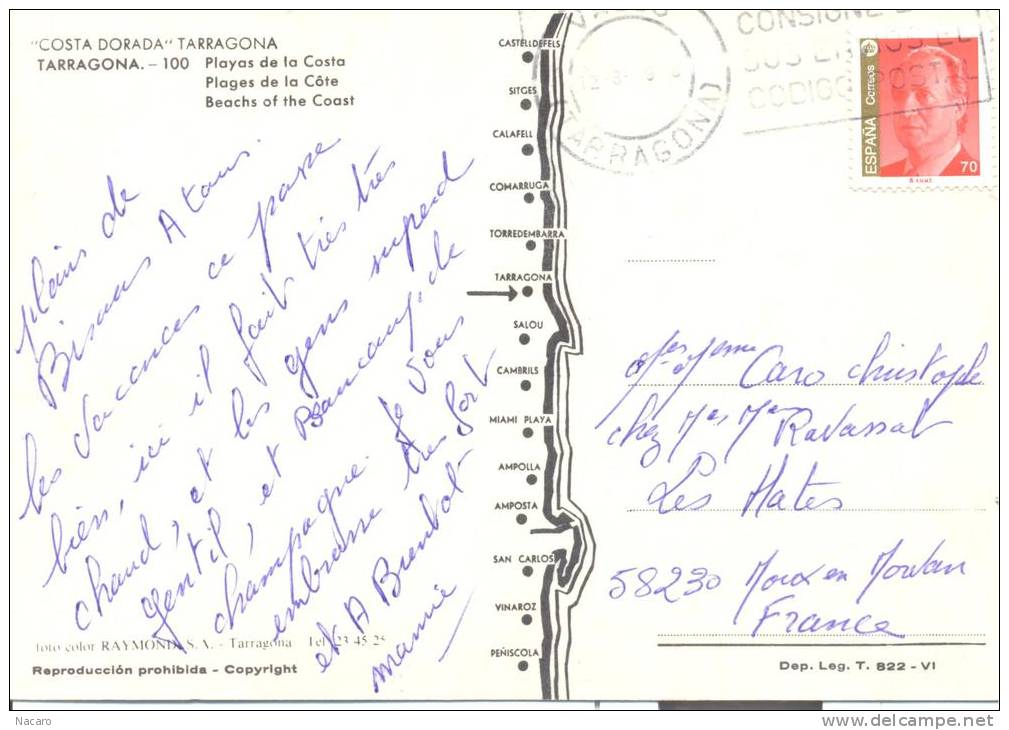 "COSTA DORADA" TARRAGONA
TARRAGONA. – 100 Playas de la Costa
Plages de la Côte
Beachs of the Coast
plains de
Bisous A tous.
les vacances ce passe
bien, ici il fait très très
chaud, et les gens superd
gentil, et Beaucoup de
champagne. Je vous
embrasse très fort
et A Bientot
mamie
foto color RAYMOND S.A. - Tarragona Tel. 23-45-25
Reproducción prohibida - Copyright
CASTELLDEFELS
SITGES
CALAFELL
COMARRUGA
TORREDEMBARRA
TARRAGONA
SALOU
CAMBRILS
MIAMI PLAYA
AMPOLLA
AMPOSTA
SAN CARLOS
VINAROZ
PEÑISCOLA
(TARRAGONA)
CONSIGNE
CODIGO POSTAL
ESPAÑA Correos
70
Caro christophe
chez Ravassat
Les Hates
58230 Moux en Morvan
France
Dep. Leg. T. 822 - VI
Nacaro
delcampe.net